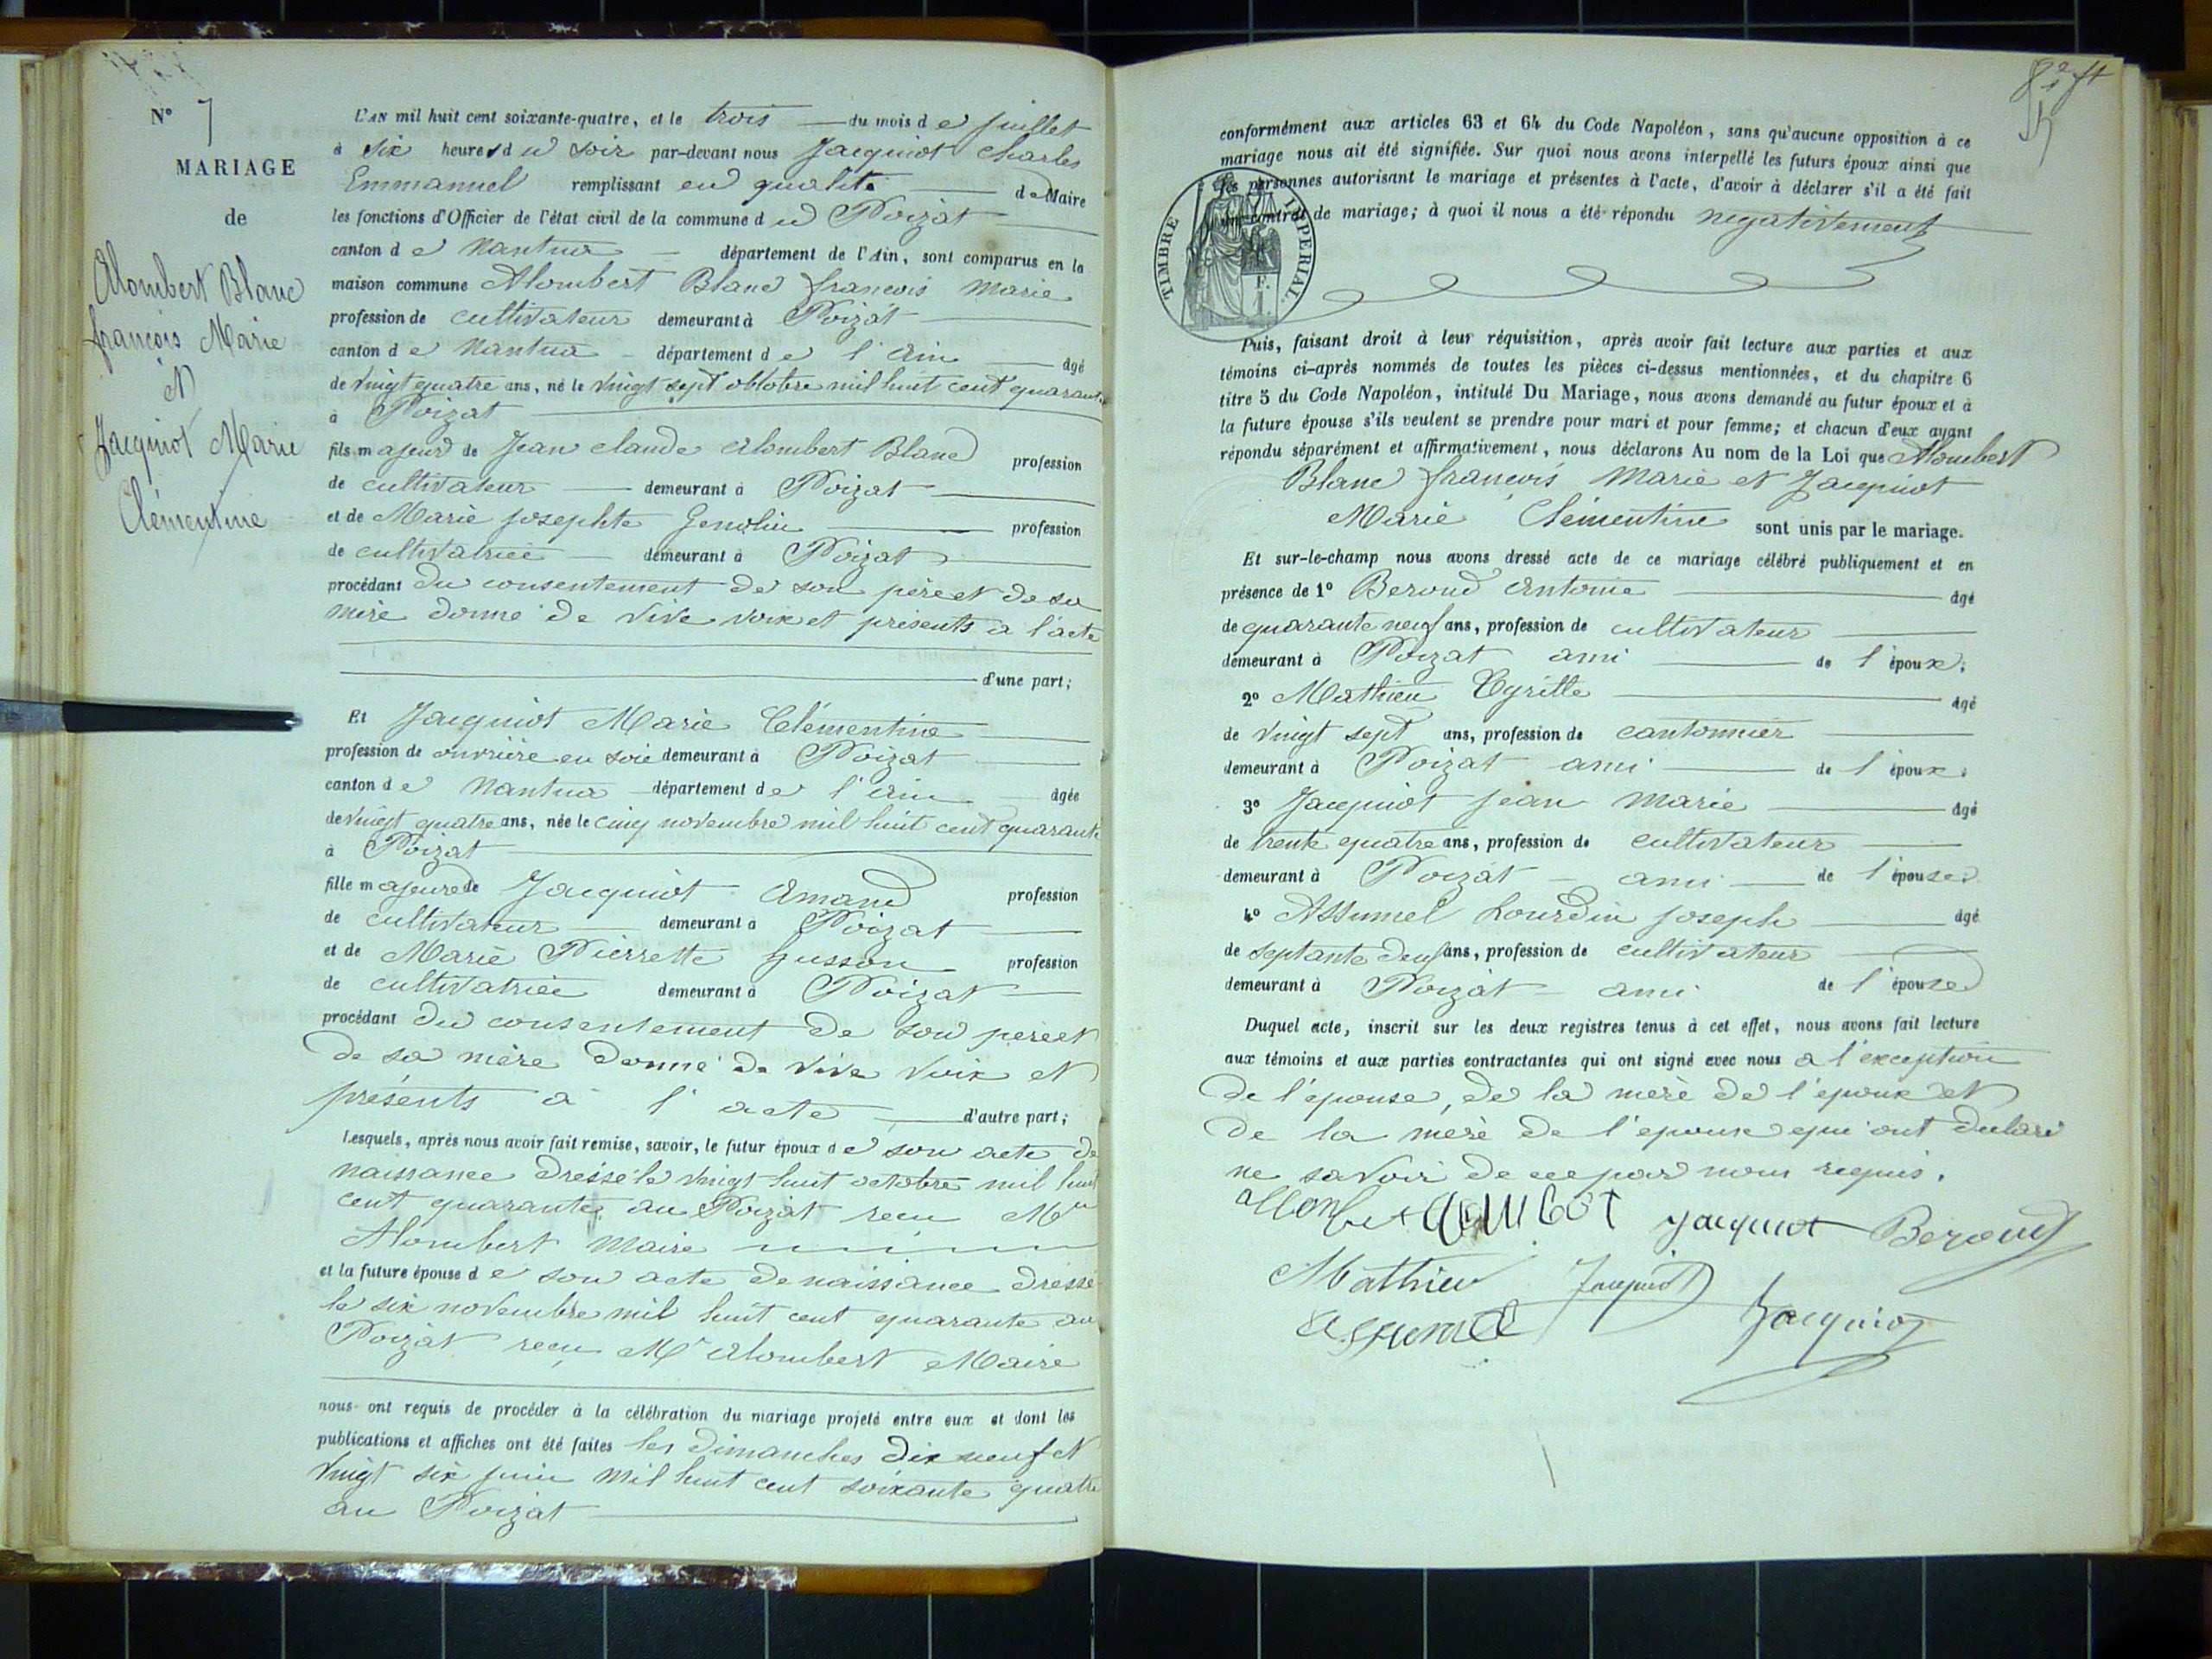 N° 7
MARIAGE
de
Alombert Blanc
françois Marie
et
Jacquiot Marie
Clémentine
L'AN mil huit cent soixante-quatre, et le trois du mois de juillet
à six heures du soir par-devant nous Jacquiot Charles
Emmanuel remplissant en qualité de Maire
les fonctions d'Officier de l'état civil de la commune du Poizat
canton de Nantua département de l'Ain, sont comparus en la
maison commune Alombert Blanc françois Marie
profession de cultivateur demeurant à Poizat
canton de Nantua département de l'Ain âgé
de vingt quatre ans, né le vingt sept octobre mil huit cent quarante
à Poizat
fils majeur de Jean Claude Alombert Blanc profession
de cultivateur demeurant à Poizat
et de Marie josephte Genolin profession
de cultivatrice demeurant à Poizat
procédant du consentement de son père et de sa
mère donné de vive voix et présents à l'acte
d'une part;
Et Jacquiot Marie Clémentine
profession de ouvrière en soie demeurant à Poizat
canton de Nantua département de l'Ain âgée
de vingt quatre ans, née le cinq novembre mil huit cent quarante
à Poizat
fille majeure de Jacquiot Amand profession
de cultivateur demeurant à Poizat
et de Marie Pierrette Husson profession
de cultivatrice demeurant à Poizat
procédant du consentement de son père et
de sa mère donné de vive voix et
présents à l'acte d'autre part;
Lesquels, après nous avoir fait remise, savoir, le futur époux de son acte de
naissance dressé le vingt huit octobre mil huit
cent quarante au Poizat reçu Mr
Alombert Maire
et la future épouse de son acte de naissance dressé
le six novembre mil huit cent quarante au
Poizat reçu Mr Alombert Maire
nous ont requis de procéder à la célébration du mariage projeté entre eux et dont les
publications et affiches ont été faites les dimanches dix neuf et
vingt six juin mil huit cent soixante quatre
au Poizat
conformément aux articles 63 et 64 du Code Napoléon, sans qu'aucune opposition à ce
mariage nous ait été signifiée. Sur quoi nous avons interpellé les futurs époux ainsi que
les personnes autorisant le mariage et présentes à l'acte, d'avoir à déclarer s'il a été fait
un contrat de mariage; à quoi il nous a été répondu négativement
TIMBRE IMPÉRIAL
Puis, faisant droit à leur réquisition, après avoir fait lecture aux parties et aux
témoins ci-après nommés de toutes les pièces ci-dessus mentionnées, et du chapitre 6
titre 5 du Code Napoléon, intitulé Du Mariage, nous avons demandé au futur époux et à
la future épouse s'ils veulent se prendre pour mari et pour femme; et chacun d'eux ayant
répondu séparément et affirmativement, nous déclarons Au nom de la Loi que Alombert
Blanc françois Marie et Jacquiot
Marie Clémentine sont unis par le mariage.
Et sur-le-champ nous avons dressé acte de ce mariage célébré publiquement et en
présence de 1° Beroud Antoine âgé
de quarante neuf ans, profession de cultivateur
demeurant à Poizat ami de l'époux;
2° Mathieu Cyrille âgé
de vingt sept ans, profession de cantonnier
demeurant à Poizat ami de l'époux.
3° Jacquiot Jean Marie âgé
de trente quatre ans, profession de cultivateur
demeurant à Poizat ami de l'épouse
4° Assumel Lourdin Joseph âgé
de septante deux ans, profession de cultivateur
demeurant à Poizat ami de l'épouse
Duquel acte, inscrit sur les deux registres tenus à cet effet, nous avons fait lecture
aux témoins et aux parties contractantes qui ont signé avec nous à l'exception
de l'épouse, de la mère de l'époux et
de la mère de l'epoux qui ont déclaré
ne savoir de ce par nous requis.
allombert Jacquiot Beroud
Mathieu Jacquiot
assumel Jacquiot